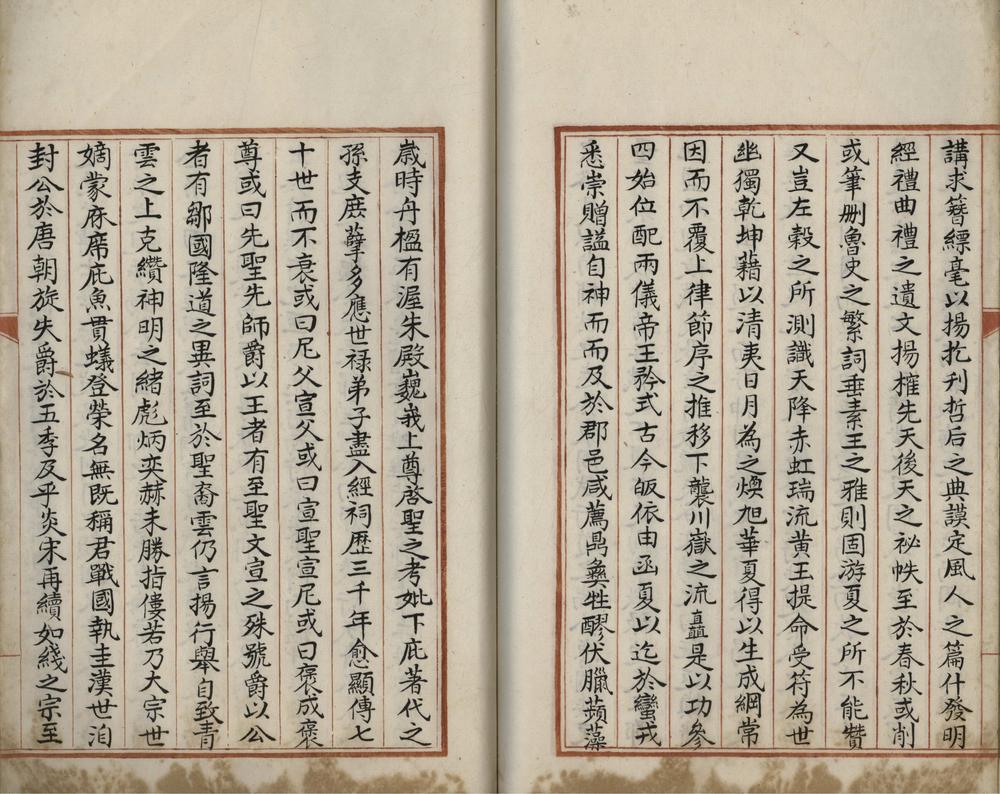 講求簪縹毫以揚扢刋哲后之典謨定風人之篇什發明
經禮曲禮之遺文揚搉先天後天之祕帙至於春秋或削
或筆删魯史之繁詞垂素王之雅則固游夏之所不能贊
又豈左穀之所測識天降赤虹瑞流黄玉提命受符為世
幽獨乾坤藉以清夷日月為之煥旭華夏得以生成綱常
因而不覆上律節序之推移下襲川嶽之流矗是以功參
四始位配兩儀帝王矜式古今皈依由函夏以迄於蠻戎
悉崇贈謚自神而而及於郡邑咸薦鬺彝牲醪伏臘蘋藻
歲時丹楹有渥朱殿巍峩上尊啓聖之考妣下庇著代之
孫支庶孽多應世禄弟子盡入經祠歷三千年愈顯傳七
十世而不衰或曰尼父宣父或曰宣聖宣尼或曰褒成褒
尊或曰先聖先師爵以王者有至聖文宣之殊號爵以公
者有鄒國隆道之異詞至於聖裔雲仍言揚行舉自致青
雲之上克纘神明之緒彪炳奕赫未勝指僂若乃大宗世
嫡蒙庥席庇魚貫蟻登榮名無旣稱君戰國執圭漢世洎
封公於唐朝旋失爵於五季及乎炎宋再續如綫之宗至